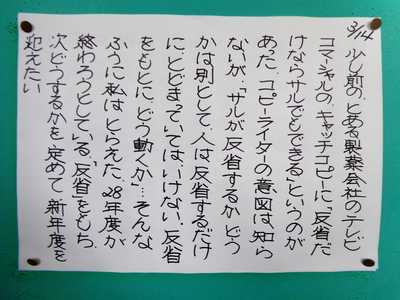 3/14 少し前の、とある製薬会社のテレビ
コマーシャルの、キャッチコピーに、「反省だ
けならサルでもできる」というのが
あった。コピーライターの意図は、知ら
ないが、「サルが反省するか、どう
かは別として、人は、反省するだけ
に、とどまっていてはいけない、反省
をもとに、どう動くか」…そんな
ふうに私はとらえた。28年度が
終わろうとしている。「反省」をもち、
次どうするかを定めて新年度を
迎えたい